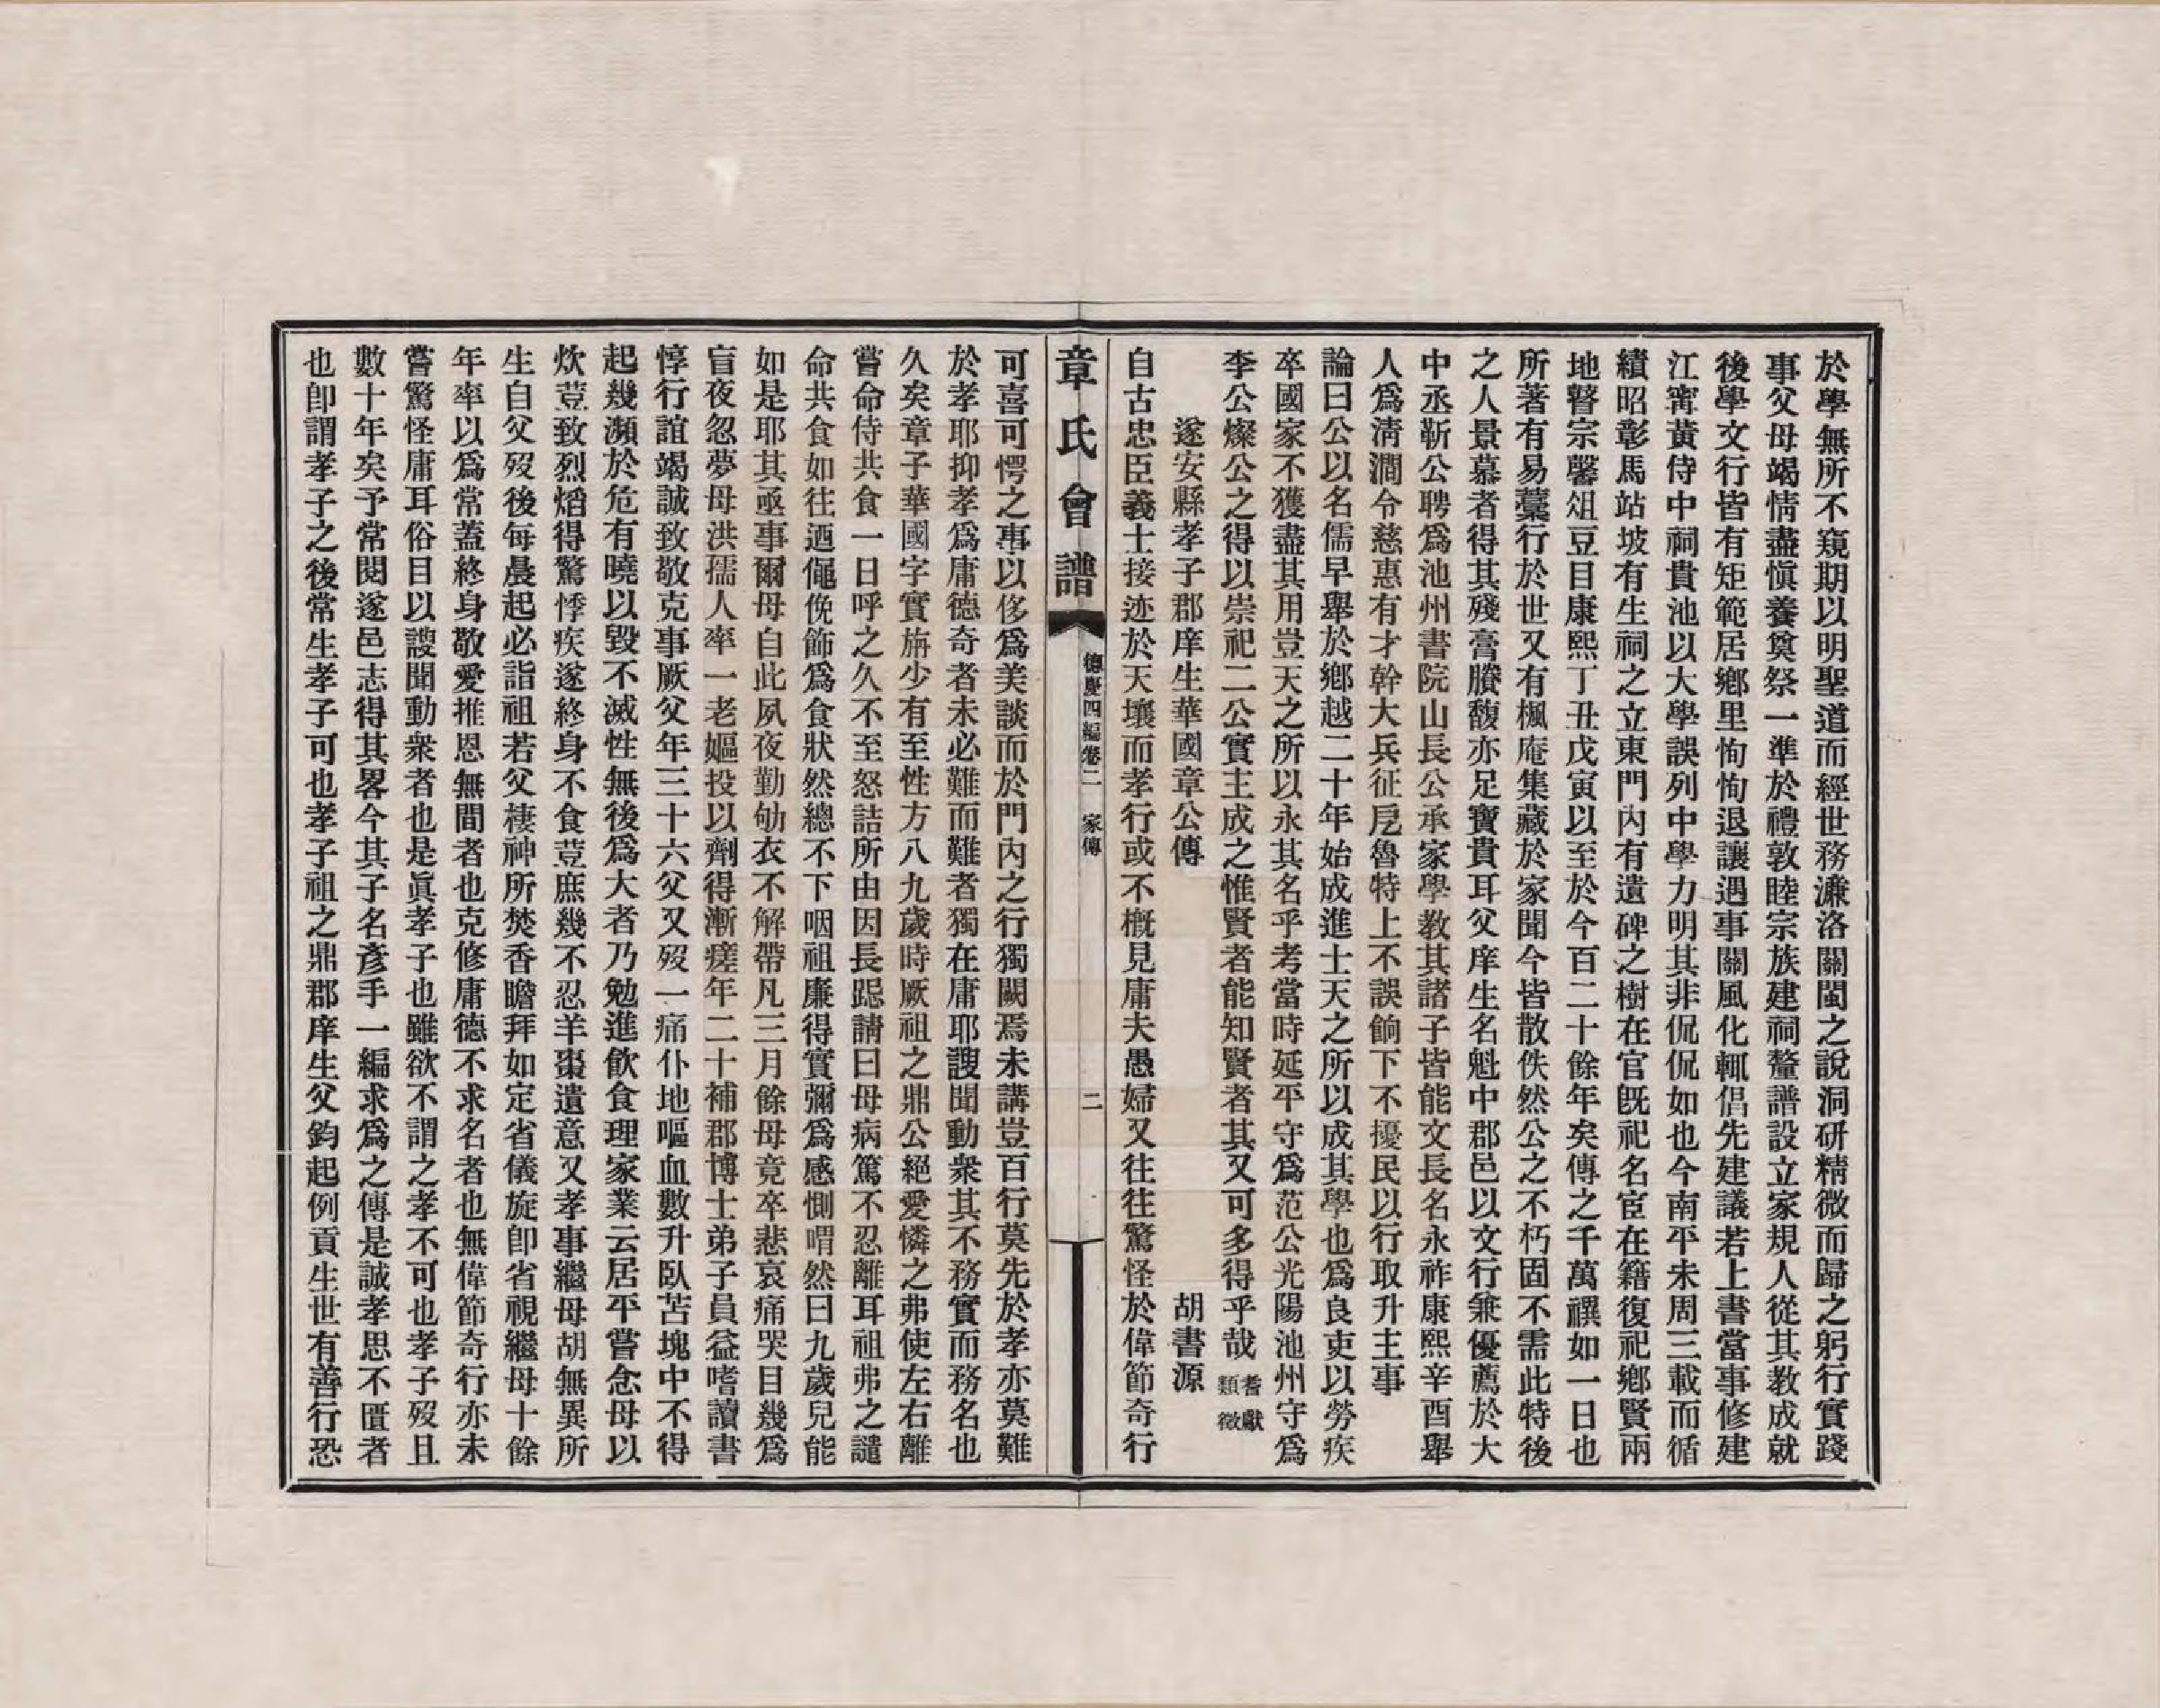 於學無所不窺期以明聖道而經世務濂洛關閩之說洞研精微而歸之躬行實踐
事父母竭情盡愼養奠祭一準於禮敦睦宗族建祠鳌譜設立家規人從其教成就
後學文行皆有矩範居鄉里恂恂退讓遇事關風化輒倡先建議若上書當事修建
江甯黃侍中祠貴池以大學誤列中學力明其非侃侃如也今南平未周三載而循
績昭彰馬站坡有生祠之立東門內有遺碑之樹在官旣祀名宦在籍復祀鄉賢兩
地瞽宗馨俎豆目康熙丁丑戊寅以至於今百二十餘年矣傳之千萬禩如一日也
所著有易藁行於世又有楓庵集藏於家聞今皆散佚然公之不朽固不需此特後
之人景慕者得其殘膏賸馥亦足寶貴耳父庠生名魁中郡邑以文行兼優薦於大
中丞靳公聘爲池州書院山長公承家學教其諸子皆能文長名永祚康熙辛酉舉
人爲淸澗令慈惠有才幹大兵征戹魯特上不誤餉下不擾民以行取升主事
論曰公以名儒早舉於鄉越二十年始成進士天之所以成其學也爲良吏以勞疾
卒國家不獲盡其用豈天之所以永其名乎考當時延平守爲范公光陽池州守爲
李公燦公之得以崇祀二公實主成之惟賢者能知賢者其又可多得乎哉 耆獻類徵
遂安縣孝子郡庠生華國章公傳 胡書源
自古忠臣義士接迹於天壤而孝行或不槪見庸夫愚婦又往往驚怪於偉節奇行
章氏會譜 德慶四編卷二 家傳 二
可喜可愕之事以侈爲美談而於門內之行獨闕焉未講豈百行莫先於孝亦莫難
於孝耶抑孝爲庸德奇者未必難而難者獨在庸耶謏聞動衆其不務實而務名也
久矣章子華國字實旃少有至性方八九歲時厥祖之鼎公絕愛憐之弗使左右離
嘗命侍共食一日呼之久不至怒詰所由因長跽請曰母病篤不忍離耳祖弗之譴
命共食如往迺僶俛飾爲食狀然總不下咽祖廉得實彌爲感惻喟然曰九歲兒能
如是耶其亟事爾母自此夙夜勤劬衣不解帶凡三月餘母竟卒悲哀痛哭目幾爲
盲夜忽夢母洪孺人率一老嫗投以劑得漸瘥年二十補郡博士弟子員益嗜讀書
惇行誼竭誠致敬克事厥父年三十六父又歿一痛仆地嘔血數升臥苫塊中不得
起幾瀕於危有曉以毀不滅性無後爲大者乃勉進飮食理家業云居平嘗念母以
炊荳致烈熖得驚悸疾遂終身不食荳庶幾不忍羊棗遺意又孝事繼母胡無異所
生自父歿後每晨起必詣祖若父棲神所焚香瞻拜如定省儀旋卽省視繼母十餘
年率以爲常蓋終身敬愛推恩無間者也克修庸德不求名者也無偉節奇行亦未
嘗驚怪庸耳俗目以謏聞動衆者也是眞孝子也雖欲不謂之孝不可也孝子歿且
數十年矣予常閱遂邑志得其畧今其子名彥手一編求爲之傳是誠孝思不匱者
也卽謂孝子之後常生孝子可也孝子祖之鼎郡庠生父鈞起例貢生世有善行恐